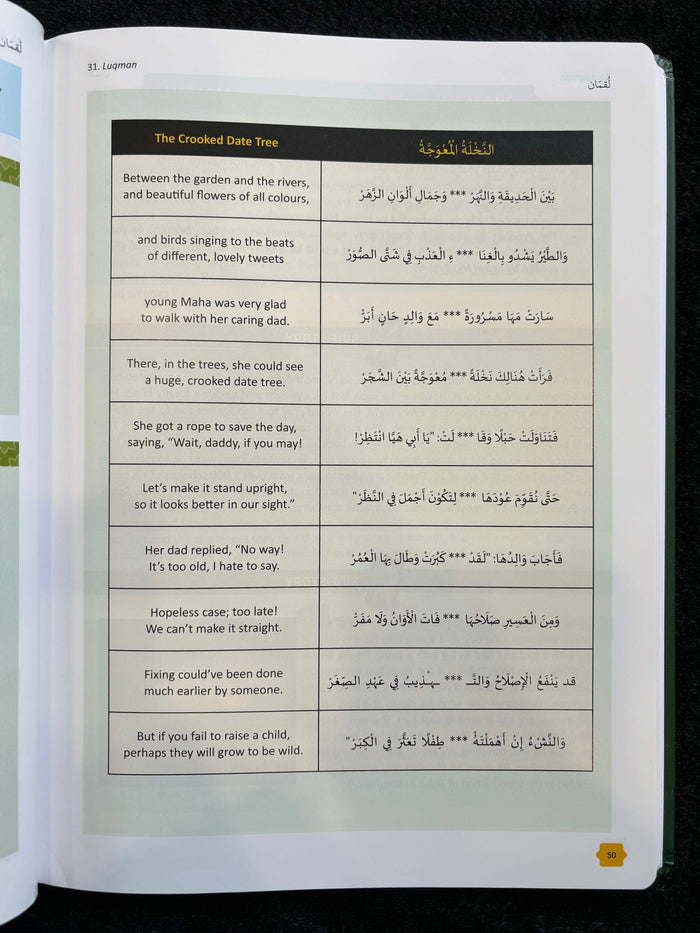 31. Luqman
لُقمَان
The Crooked Date Tree
النَّخْلَةُ الْمُعْوَجَّةُ
Between the garden and the rivers,
and beautiful flowers of all colours,
بَيْنَ الْحَدِيقَةِ وَالنَّهَرْ *** وَجَمَالِ أَلْوَانِ الزَّهَرْ
and birds singing to the beats
of different, lovely tweets
وَالطَّيْرُ يَشْدُو بِالْغِنَا *** ءِ الْعَذْبِ فِي شَتَّى الصُّوَرْ
young Maha was very glad
to walk with her caring dad.
سَارَتْ مَهَا مَسْرُورَةً *** مَعَ وَالِدٍ حَانٍ أَبَرُّ
There, in the trees, she could see
a huge, crooked date tree.
فَرَأَتْ هُنَالِكَ نَخْلَةً *** مُعْوَجَّةً بَيْنَ الشَّجَرْ
She got a rope to save the day,
saying, “Wait, daddy, if you may!
فَتَنَاوَلَتْ حَبْلًا وَقَا *** لَتْ: "يَا أَبِي هَيَّا انْتَظِرْ!
Let’s make it stand upright,
so it looks better in our sight.”
حَتَّى نُقَوِّمَ عُودَهَا *** لِتَكُوْنَ أَجْمَلَ فِي النَّظَرْ"
Her dad replied, “No way!
It’s too old, I hate to say.
فَأَجَابَ وَالِدُهَا: "لَقَدْ *** كَبُرَتْ وَطَالَ بِهَا الْعُمُرْ
Hopeless case; too late!
We can’t make it straight.
وَمِنَ الْعَسِيرِ صَلَاحُهَا *** فَاتَ الْأَوَانُ وَلَا مَفَرُّ
Fixing could’ve been done
much earlier by someone.
قد يَنْفَعُ الْإِصْلَاحُ وَالتَّـ *** ـهْذِيبُ فِي عَهْدِ الصِّغَرْ
But if you fail to raise a child,
perhaps they will grow to be wild.
وَالنَّشْءُ إِنْ أَهْمَلْتَهُ *** طِفْلًا تَعَثَّرَ فِي الْكِبَرْ"
50